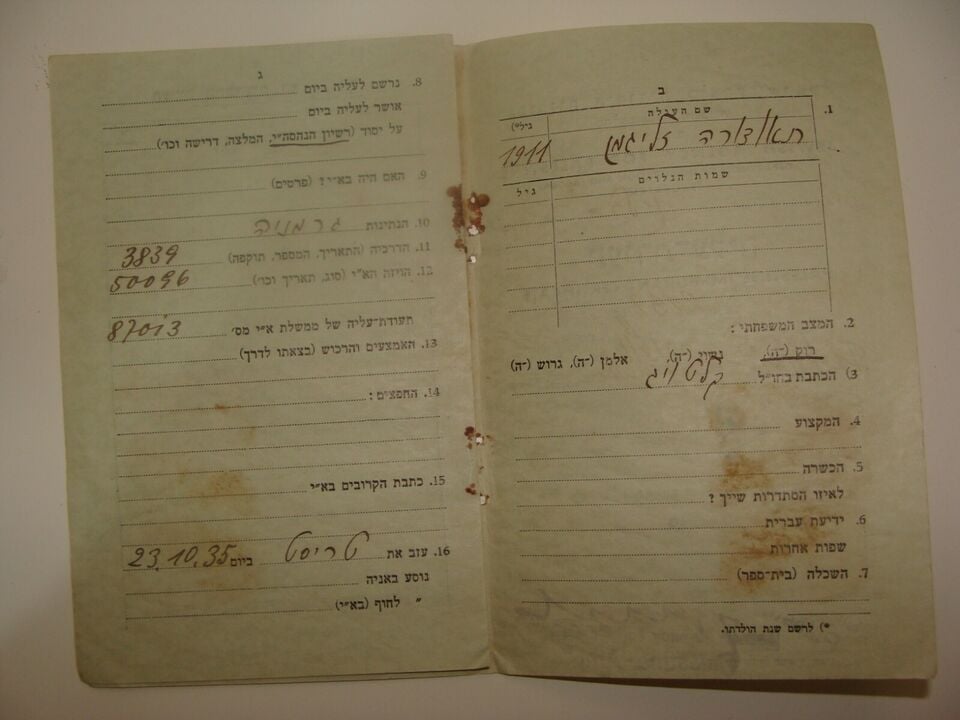 ב
1. שם העולה גיל*)
תאודורה זליגמן 1911
שמות הנלוים גיל
2. המצב המשפחתי:
רוק (־ה), נשוי (־ה), אלמן (־ה), גרוש (־ה)
3) הכתבת בחו״ל
4. המקצוע
5. הכשרה
לאיזו הסתדרות שייך?
6. ידיעת עברית
שפות אחרות
7. השכלה (בית־ספר)
*) לרשם שנת הולדתו.
ג
8. נרשם לעליה ביום
אושר לעליה ביום
על יסוד (רשיון הנהסה״י, המלצה, דרישה וכו׳)
9. האם היה בא״י? (פרטים)
10. הנתינות גרמניה
11. הדרכיה (התאריך, המספר, תוקפה) 3839
12. הויזה הא״י (סוג, תאריך וכו׳) 50096
תעודת־עליה של ממשלת א״י מס׳ 87013
13. האמצעים והרכוש (בצאתו לדרך)
14. החפצים:
15. כתבת הקרובים בא״י
16. עזב את טריסט ביום 23.10.35
נוסע באניה
״ לחוף (בא״י)